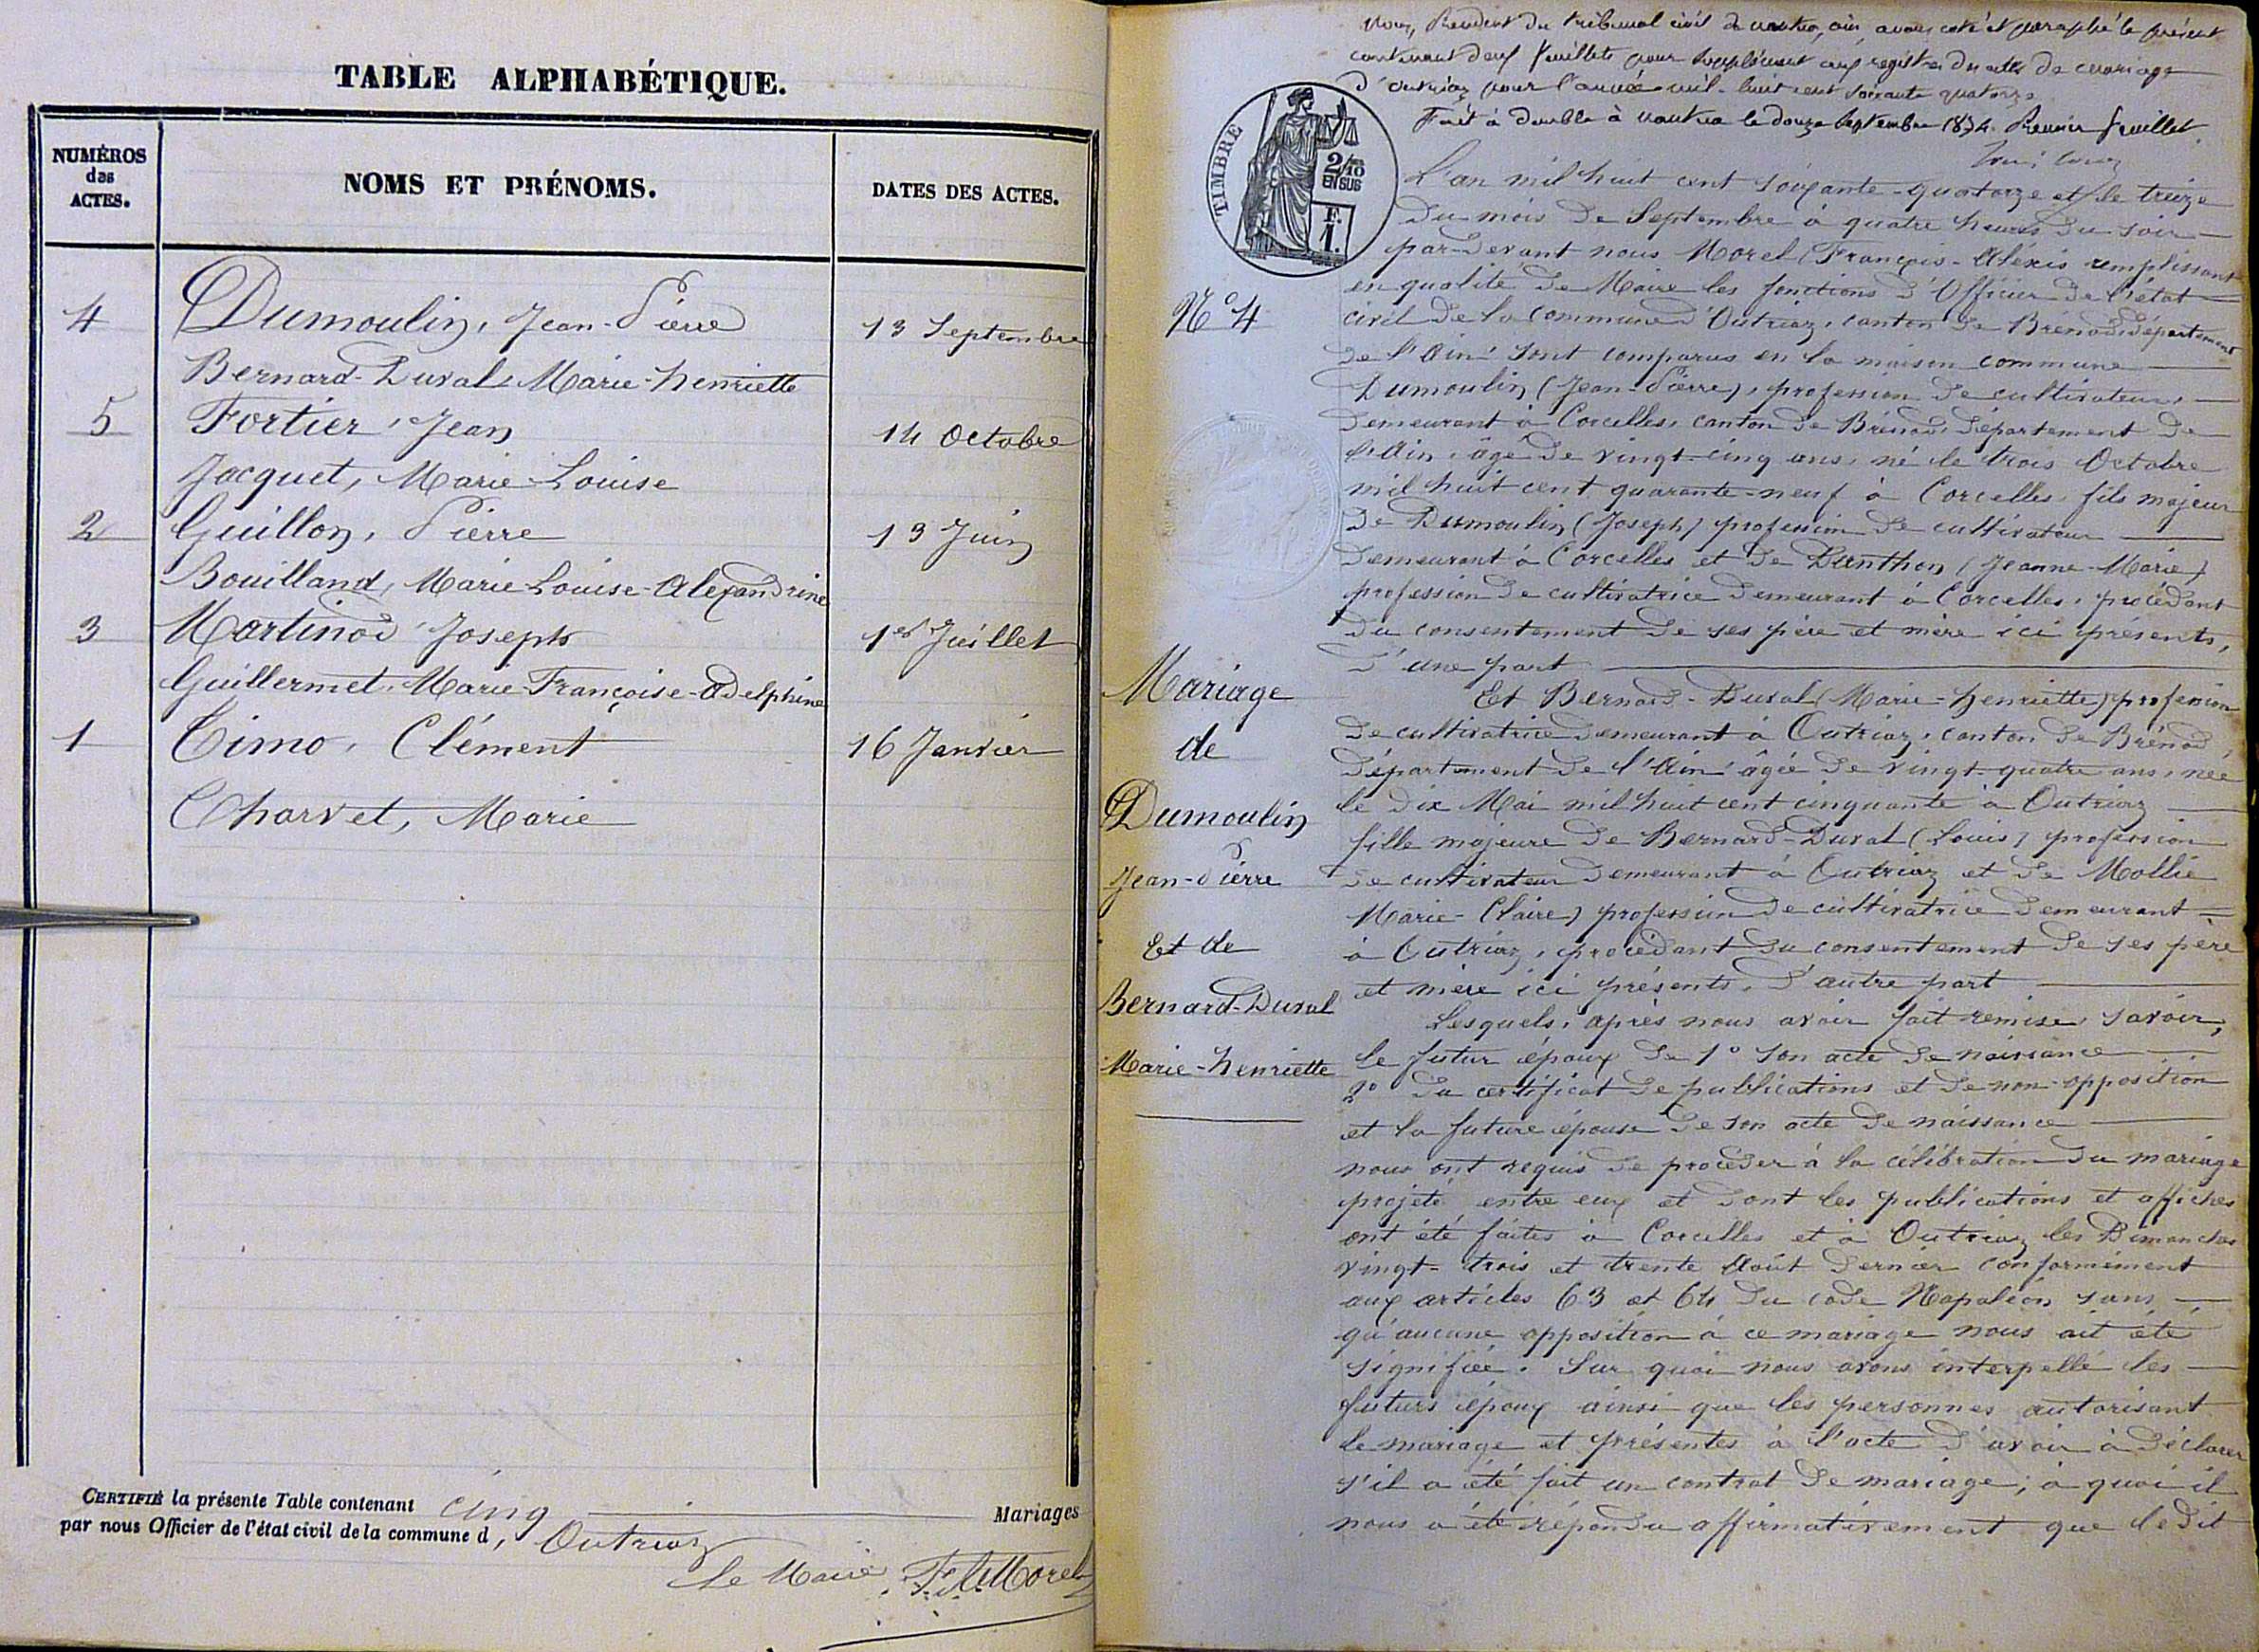 TABLE ALPHABÉTIQUE.
NUMÉROS
des
ACTES.
NOMS ET PRÉNOMS.
DATES DES ACTES.
4 Dumoulin, Jean-Pierre 13 Septembre
Bernard-Duval, Marie-henriette
5 Fortier, Jean 14 Octobre
Jacquet, Marie-Louise
2 Guillon, Pierre 13 Juin
Bouilland, Marie Louise-Alexandrine
3 Martinod Joseph 1er Juillet
Guillermet, Marie Françoise-Adelphine
1 Timo, Clément 16 Janvier
Charvet, Marie
CERTIFIÉ la présente Table contenant cinq Mariages
par nous Officier de l'état civil de la commune d, Outriaz
Le Maire, F. A. Morel
Nous, Président du tribunal civil de Nantua, ain, avons coté et paraphé le présent
contenant deux feuillets pour supplément aux registres des actes de mariage
d'Outriaz pour l'année mil-huit cent soixante quatorze
Fait à double à Nantua le douze Septembre 1874. Premier feuillet.
TIMBRE
2/10
EN SUS
F.
1.
L'an mil huit cent soixante-quatorze et le treize
du mois de Septembre à quatre heures du soir
par-devant nous Morel (François-Alexis remplissant
en qualité de Maire les fonctions d'Officier de l'état
N° 4
civil de la commune d'Outriaz, canton de Brénod, département
de l'Ain sont comparus en la maison commune
Dumoulin (Jean-Pierre), profession de cultivateur,
demeurant à Corcelles, canton de Brénod, département de
l'Ain, âgé de vingt-cinq ans, né le trois Octobre
mil huit cent quarante-neuf à Corcelles, fils majeur
de Dumoulin (Joseph) profession de cultivateur
demeurant à Corcelles et de Dunthon (Jeanne-Marie)
profession de cultivatrice demeurant à Corcelles, procédant
du consentement de ses père et mère ici présents,
d'une part
Mariage
de
Dumoulin
Jean-Pierre
Et de
Bernard-Duval
Marie-henriette
Et Bernard-Duval (Marie-henriette) profession
de cultivatrice demeurant à Outriaz, canton de Brénod,
département de l'Ain âgée de vingt-quatre ans, née
le dix Mai mil huit cent cinquante à Outriaz
fille majeure de Bernard-Duval (Louis) profession
de cultivateur demeurant à Outriaz et de Mollie
Marie-Claire) profession de cultivatrice demeurant
à Outriaz, procédant du consentement de ses père
et mère ici présents, d'autre part
Lesquels, après nous avoir fait remise, savoir,
le futur époux de 1° son acte de naissance
2° du certificat de publications et de non-opposition
et la future épouse de son acte de naissance
nous ont requis de procéder à la célébration du mariage
projeté entre eux et dont les publications et affiches
ont été faites à Corcelles et à Outriaz les Dimanches
vingt-trois et trente Août dernier conformément
aux articles 63 et 64 du code Napoléon sans
qu'aucune opposition à ce mariage nous ait été
signifiée. Sur quoi nous avons interpellé les
futurs époux ainsi que les personnes autorisant
le mariage et présentes à l'acte d'avoir à déclarer
s'il a été fait un contrat de mariage; à quoi il
nous a été répondu affirmativement que ledit